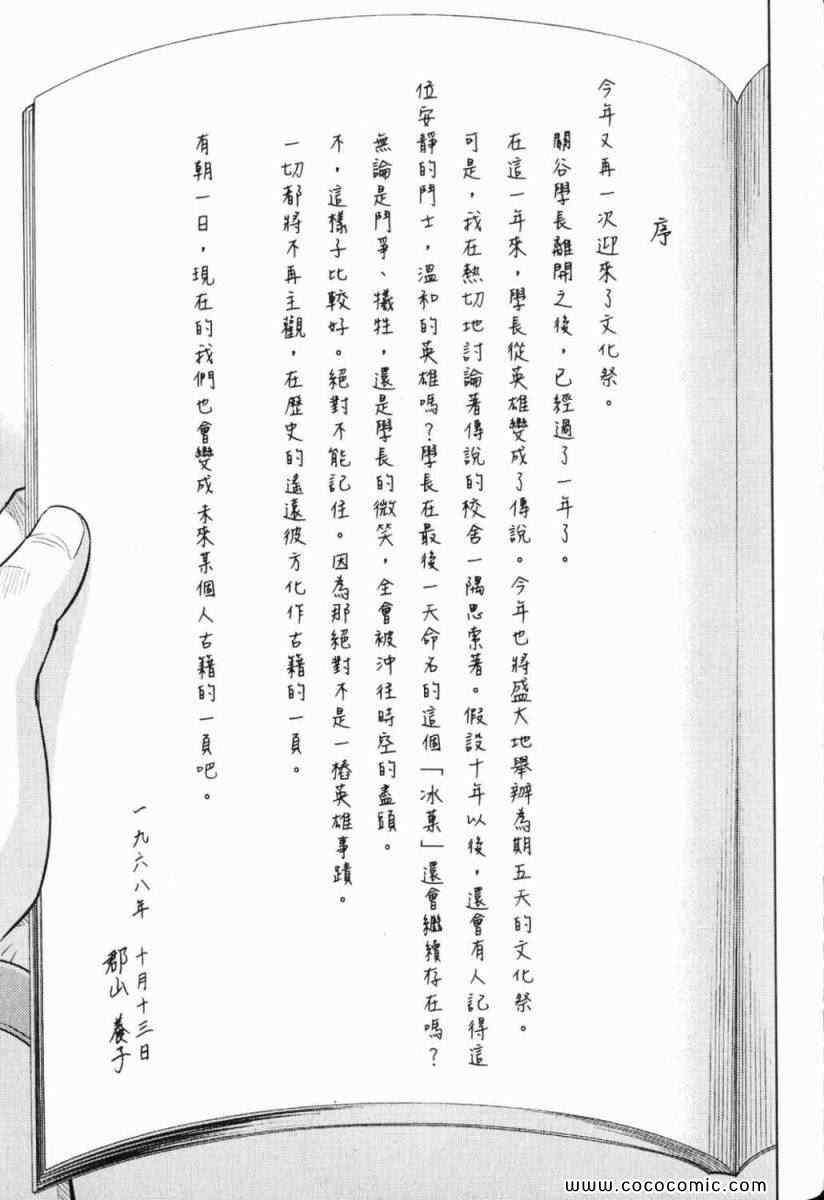 序
今年又再一次迎來了文化祭。
關谷學長離開之後，已經過了一年了。
在這一年來，學長從英雄變成了傳說。今年也將盛大地舉辦為期五天的文化祭。
可是，我在熱切地討論著傳說的校舍一隅思索著。假設十年以後，還會有人記得這
位安靜的鬥士，溫和的英雄嗎？學長在最後一天命名的這個「冰菓」還會繼續存在嗎？
無論是鬥爭、犧牲，還是學長的微笑，全會被沖往時空的盡頭。
不，這樣子比較好。絕對不能記住。因為那絕對不是一樁英雄事蹟。
一切都將不再主觀，在歷史的遙遠彼方化作古籍的一頁。
有朝一日，現在的我們也會變成未來某個人古籍的一頁吧。
一九六八年 十月十三日
郡山 養子
www.cococomic.com